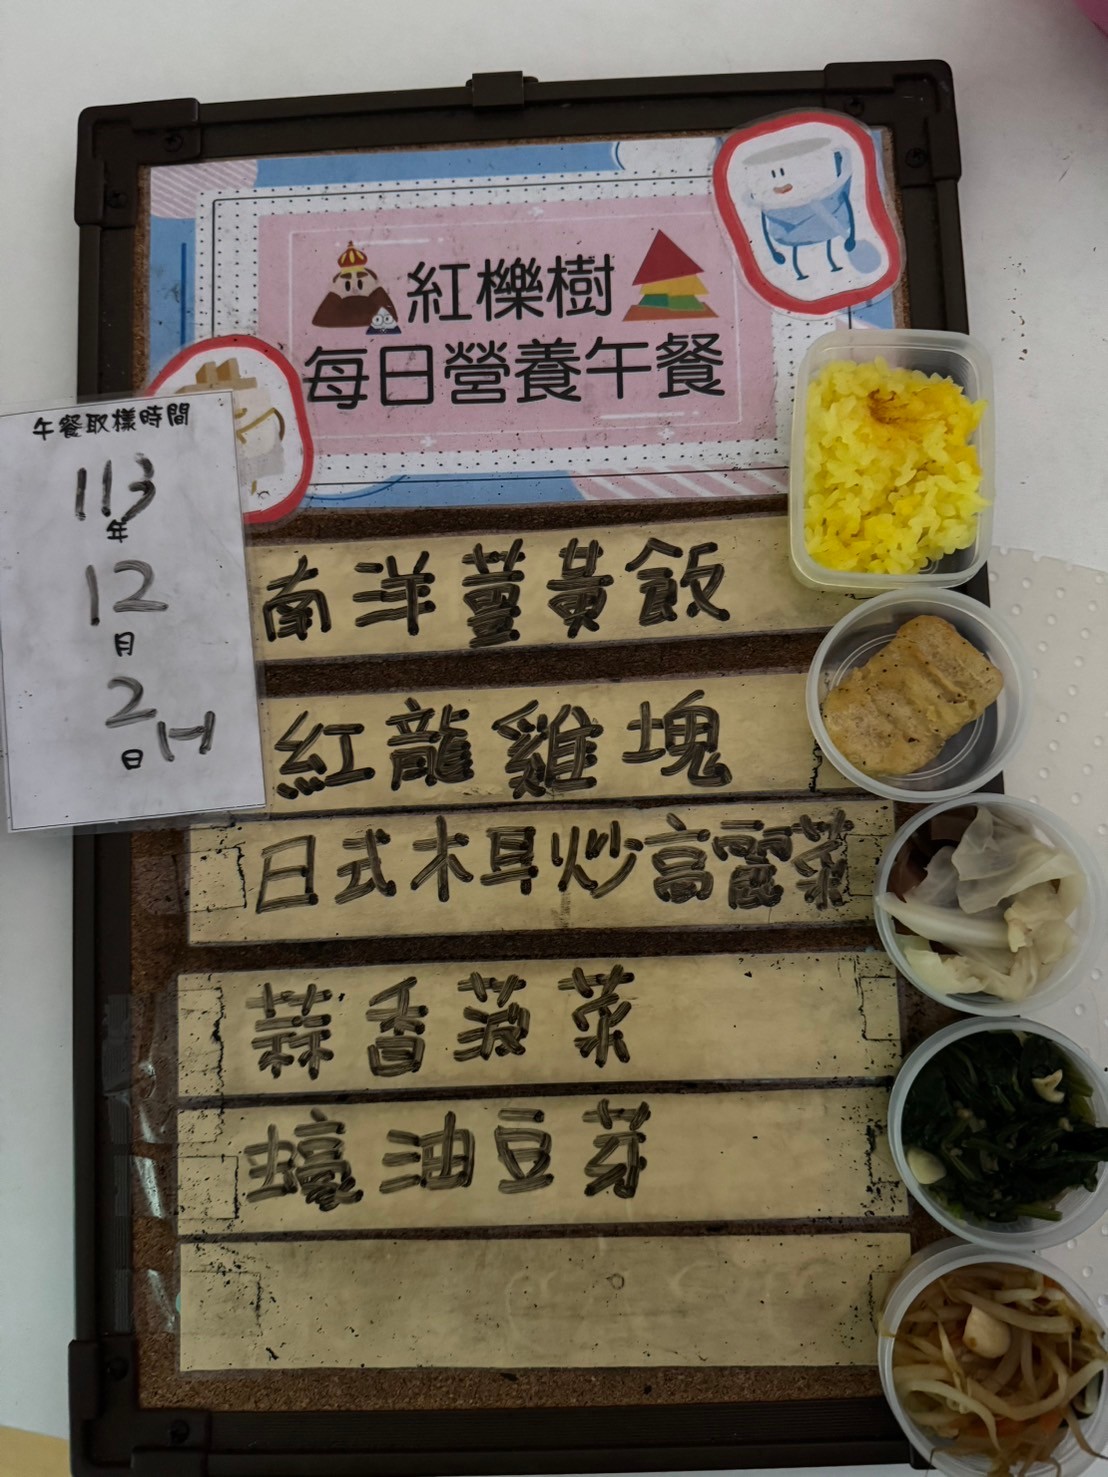 紅櫟樹
每日營養午餐
午餐取樣時間
113
年
12
月
2
日
南洋薑黃飯
紅龍雞塊
日式木耳炒高麗菜
蒜香菠菜
蠔油豆芽